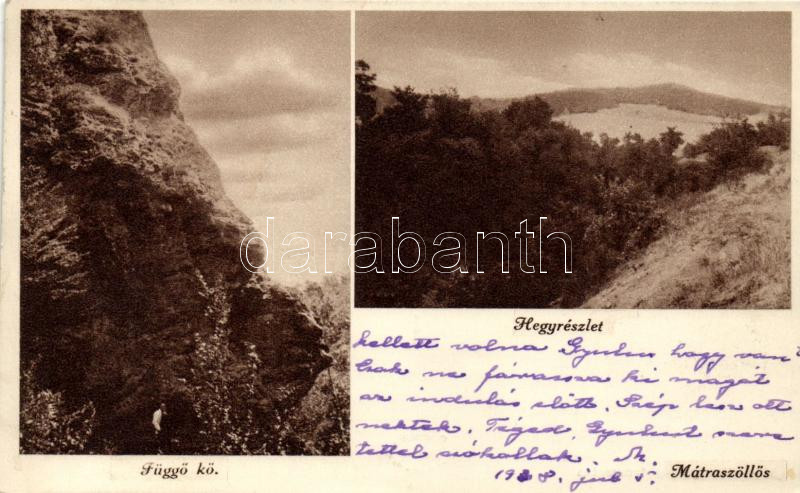 darabanth
Hegyrészlet
kellett volna Gyulus hogy van
csak ne fárassza ki magát
az indulás előtt. Szép lesz ott
nektek. Téged, Gyulust szere
tettel csókollak.
Függő kő.
Mátraszöllős